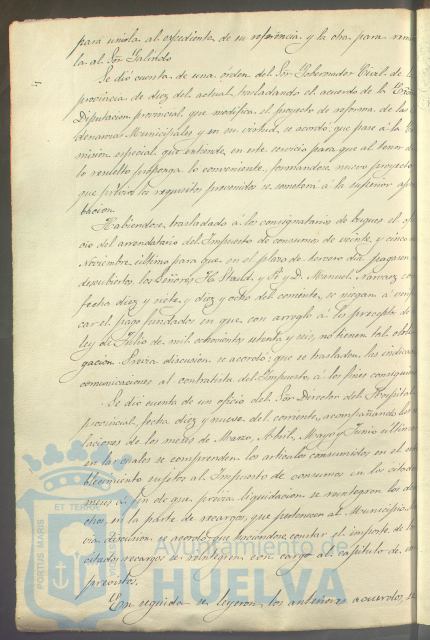 para unirla al expediente de su referencia y la otra para remi
la al Sor Galindo
Se dió cuenta de una órden del Sor Gobernador Civil de l
provincia de diez del actual trasladando el acuerdo de la Exc
Diputacion provincial que modifica el proyecto de reforma de las
denanzas Municipales y en su virtud, se acordó: que pase á la Co
mision especial que entiende en este servicio para que al tenor de
lo resuelto proponga lo conveniente, formandose nuevo proyecto
que prévios los requisitos prevenidos se someterá á la superior apro
bacion.
Habiéndose trasladado á los consignatarios de buques el of
cio del arrendatario del Impuesto de consumos de veinte y cinco
Noviembre último para que en el plazo de tercero dia paguen
descubiertos, los Señores H. Staut y Cª y D. Manuel Narvaez co
fecha diez y siete y diez y ocho del corriente, se niegan á
car el pago fundados en que con arreglo á los preceptos de
ley de Julio de mil ochocientos setenta y seis, no tienen tal obli
gacion. Prévia discusion se acordó: que se trasladen las indicad
comunicaciones al contratista del Impuesto á los fines consiguien
Se dió cuenta de un oficio del Sor Director del Hospital
provincial, fecha diez y nueve del corriente, acompañando las
laciones de los meses de Marzo, Abril, Mayo y Junio último
en las cuales se comprenden los artículos consumidos en el
blecimiento sujetos al Impuesto de consumos en los citado
meses á fin de que prévia liquidacion se reintegren los de
chos, en la parte de recargos, que pertenecen al Municipio.
via discusion se acordó que haciéndose constar el importe de lo
citados recargos se reintegren con cargo al capítulo de im
previstos.
En seguida se leyeron los anteriores acuerdos, se
ET TERRÆ
PORTUS MARIS
Ayuntamiento de
HUELVA